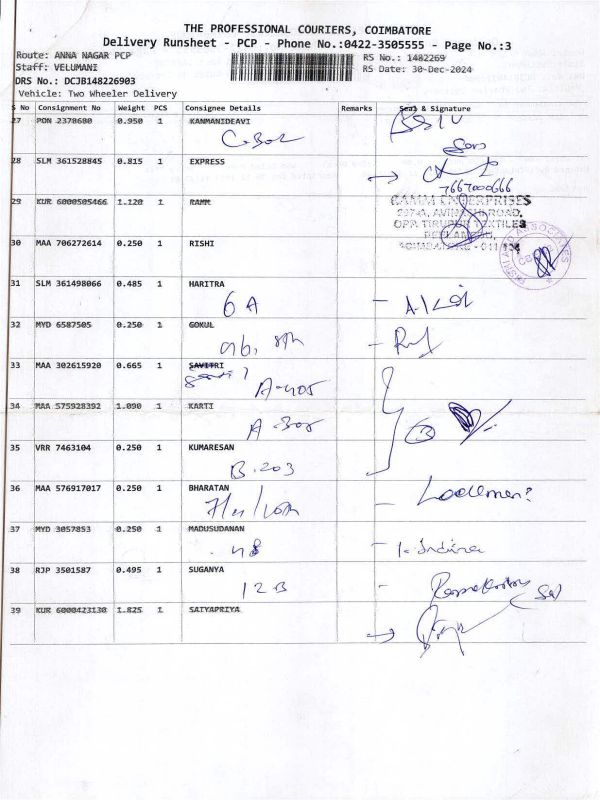 THE PROFESSIONAL COURIERS, COIMBATORE
Delivery Runsheet - PCP - Phone No.:0422-3505555 - Page No.:3
Route: ANNA NAGAR PCP
RS No.: 1482269
Staff: VELUMANI
RS Date: 30-Dec-2024
DRS No.: DCJB148226903
Vehicle: Two Wheeler Delivery
S No Consignment No Weight PCS Consignee Details Remarks Seal & Signature
27 PON 2378680 0.950 1 KANMANIDEAVI
28 SLM 361528845 0.815 1 EXPRESS
7667000666
29 KUR 6000505466 1.120 1 RAMM
RAMM ENTERPRISES
30 MAA 706272614 0.250 1 RISHI
31 SLM 361498066 0.485 1 HARITRA
6 A
32 MYD 6587505 0.250 1 GOKUL
33 MAA 302615920 0.665 1 SAVITRI
A-405
34 MAA 575928392 1.090 1 KARTI
A-305
35 VRR 7463104 0.250 1 KUMARESAN
B.203
36 MAA 576917017 0.250 1 BHARATAN
37 MYD 3057853 0.250 1 MADUSUDANAN
38 RJP 3501587 0.495 1 SUGANYA
12 B
39 KUR 6000423130 1.825 1 SATYAPRIYA